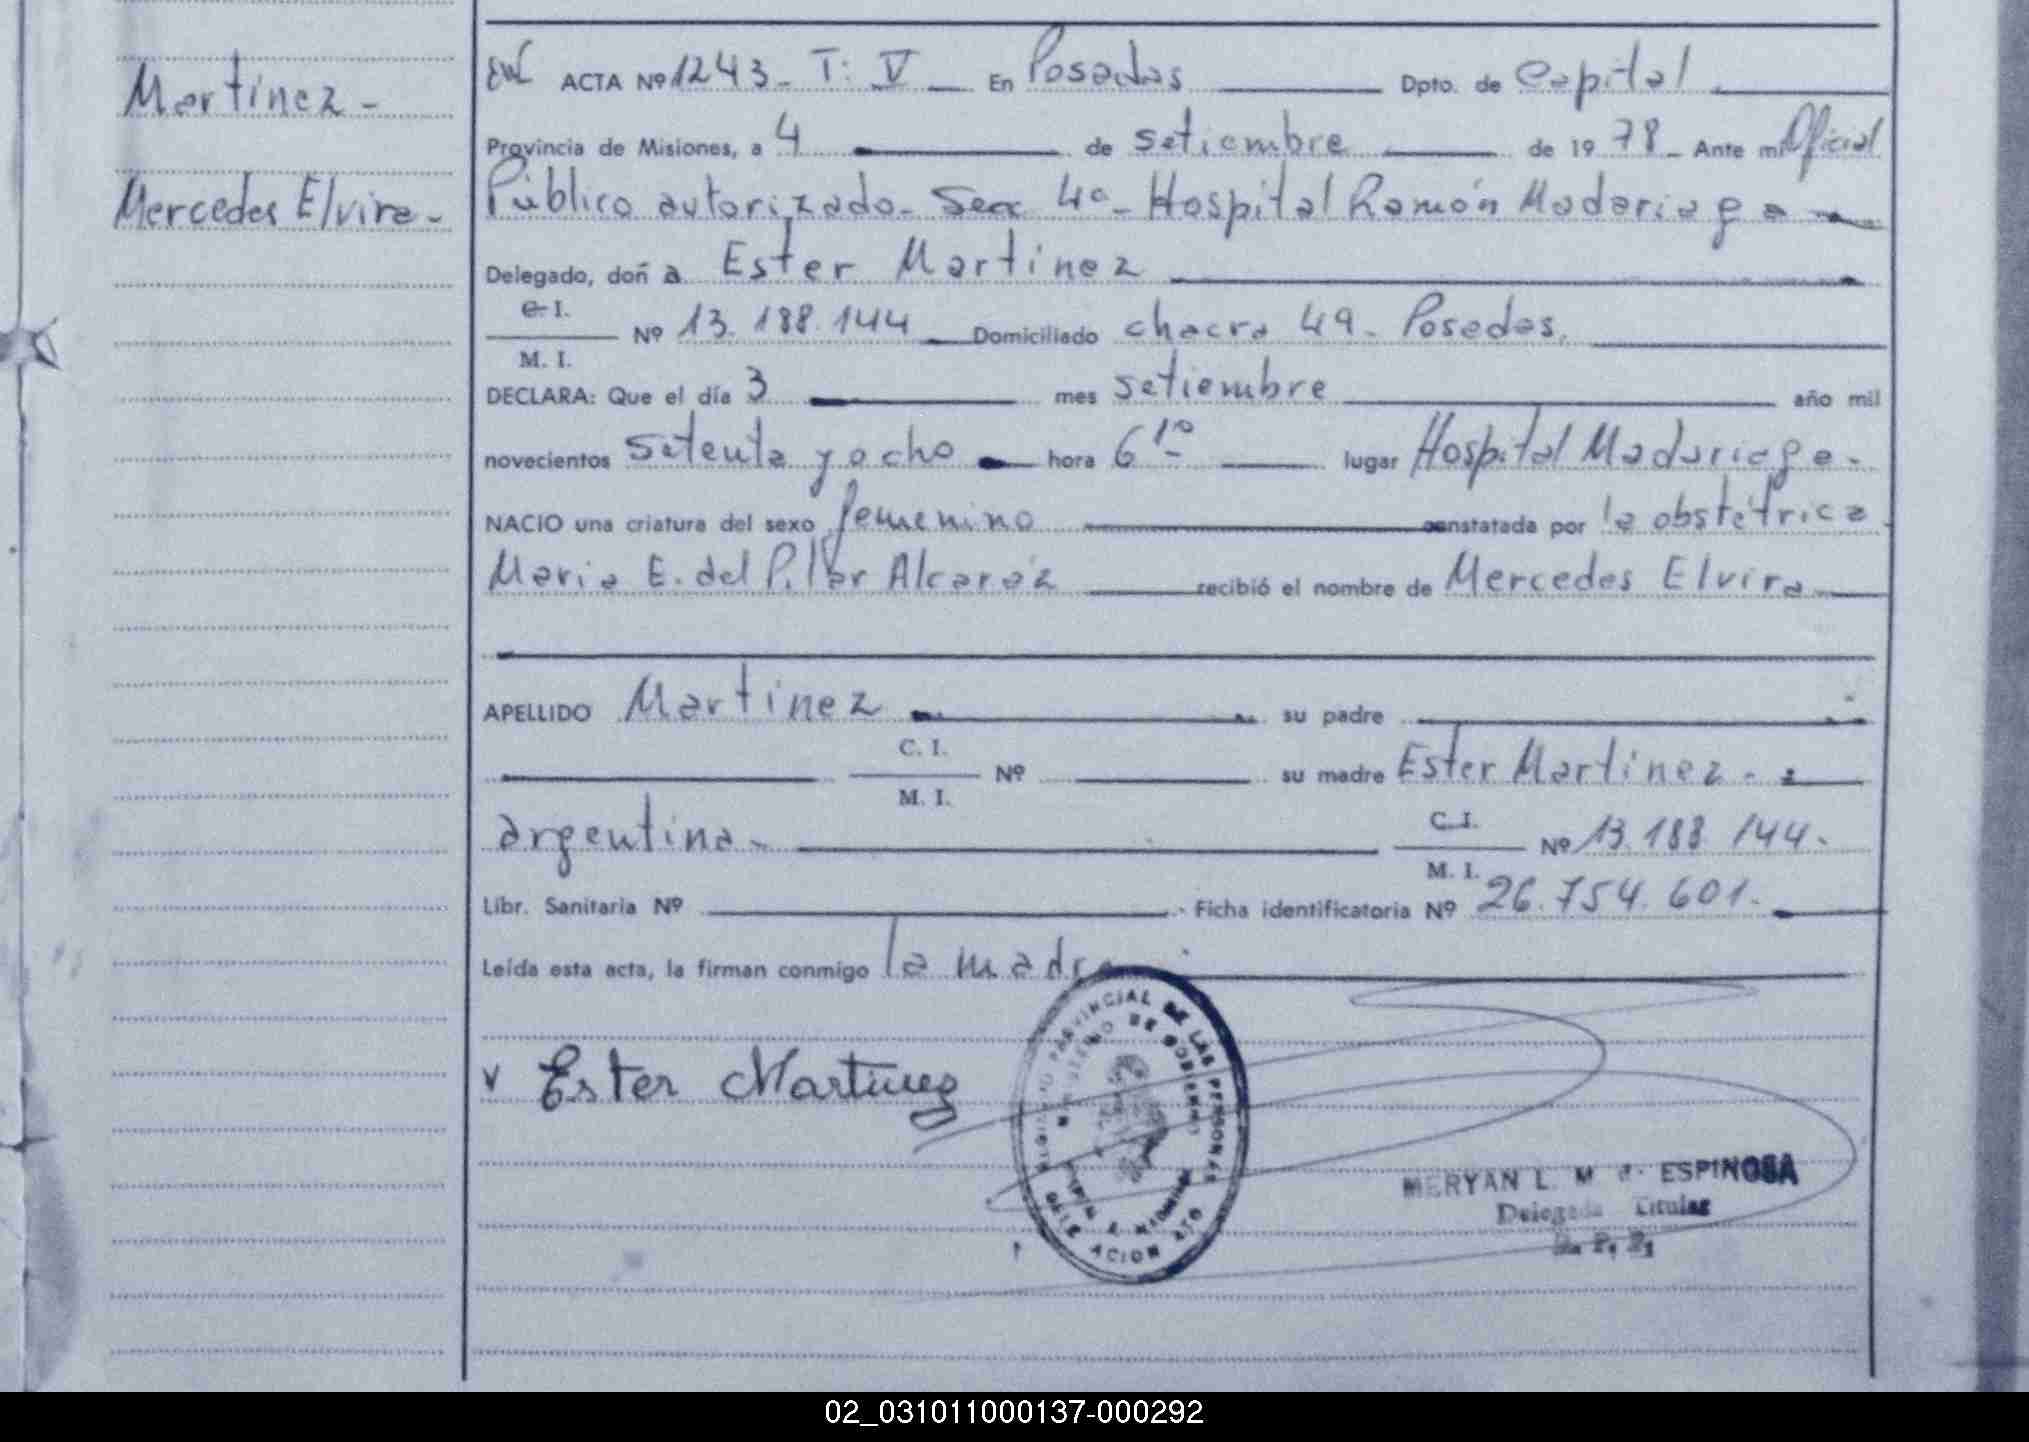 Martinez -
Mercedes Elvira -
ACTA Nº 1243 - T: V — En Posadas — Dpto. de Capital
Provincia de Misiones, a 4 — de setiembre — de 1978 - Ante mi Oficial
Público autorizado - Secc 4ª - Hospital Ramón Madariaga
Delegado, doña Ester Martinez
C. I.
Nº 13.188.144 — Domiciliado chacra 49 - Posadas.
M. I.
DECLARA: Que el día 3 — mes setiembre — año mil
novecientos setenta y ocho — hora 6 10 — lugar Hospital Madariaga -
NACIO una criatura del sexo femenino — constatada por la obstétrica
Maria E. del Pilar Alcaráz — recibió el nombre de Mercedes Elvira
APELLIDO Martinez — su padre
C. I.
Nº — su madre Ester Martinez -
M. I.
argentina -
C. I.
Nº 13.188.144 -
M. I.
Libr. Sanitaria Nº — Ficha identificatoria Nº 26.754.601 -
Leída esta acta, la firman conmigo la madre
Ester Martinez
PROVINCIAL DE LAS PERSONAS
DE GOBIERNO
MERYAN L. M. d. ESPINOSA
Delegada Titular
02_031011000137-000292